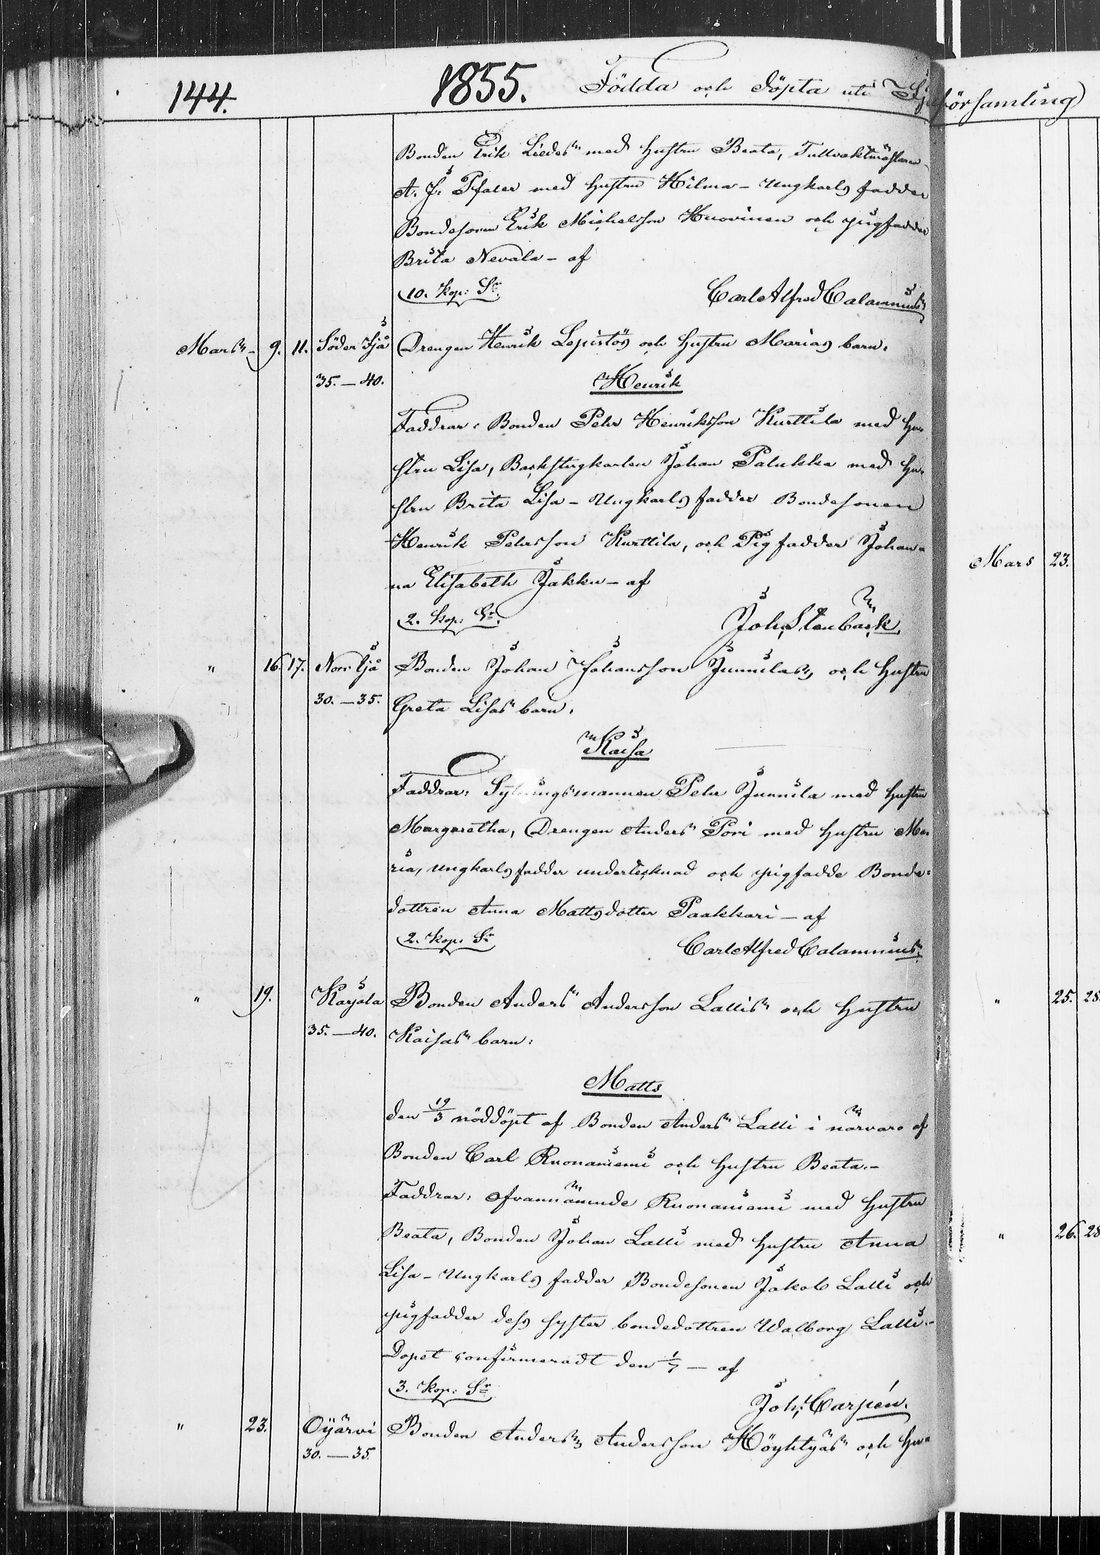 144.
1855.
Födda och döpta uti Ijo församling)
Bonden Erik Liedes med hustru Beata, Tullvaktmästaren
A. J. Pfaler med hustru Hilma – Ungkarls fadder
Bondesonen Erik Michelsson Huovinen och pigfadder
Brita Nevala – af
10. Kop: Sr.
Carl Alfred Calamnius
Mars – 9. 11. Söder Ijå Drengen Henrik Lepistös och hustru Marias barn.
35. – 40.
Henrik
Faddrar: Bonden Pehr Henriksson Kurttila med hu-
stru Lisa, Backstugkarlen Johan Palukka med hu-
stru Brita Lisa – Ungkarls fadder Bondesonen
Henrik Pehrsson Kurttila, och Pigfadder Johan-
na Elisabeth Jakku – af
2. Kop: Sr.
Joh. Stenbäck
" 16 17. Norr Ijå Bonden Johan Johansson Junnilas, och hustru
30. – 35. Greta Lisas barn.
Kaisa
Faddrar: Sytningsmannen Pehr Junnila med hustru
Margaretha, Drengen Anders Pöri med hustru Ma-
ria, ungkarls fadder undertecknad och pigfadde Bonde-
dottren Anna Mattsdotter Paakkari – af
2. Kop: Sr
Carl Alfred Calamnius
" 19. Karjala Bonden Anders Andersson Lallis och hustru
35. – 40. Kaisas barn:
Matts
den 19/3 nöddöpt af Bonden Anders Lalli i närvaro af
Bonden Carl Ruonaniemi och hustru Beata. –
Faddrar: Ofvannämnde Ruonaniemi med hustru
Beata, Bonden Johan Lalli med hustru Anna
Lisa – Ungkarls fadder Bondesonen Jakob Lalli och
pigfadder dess syster bondedottren Walborg Lalli. –
Dopet confirmeradt den 1/7 – af
3. Kop: Sr
Joh. Carpén.
" 23. Oijärvi Bonden Anders Andersson Höyhtyäs och hu-
30. – 35.
Mars 23.
" 25. 25.
" 26. 28